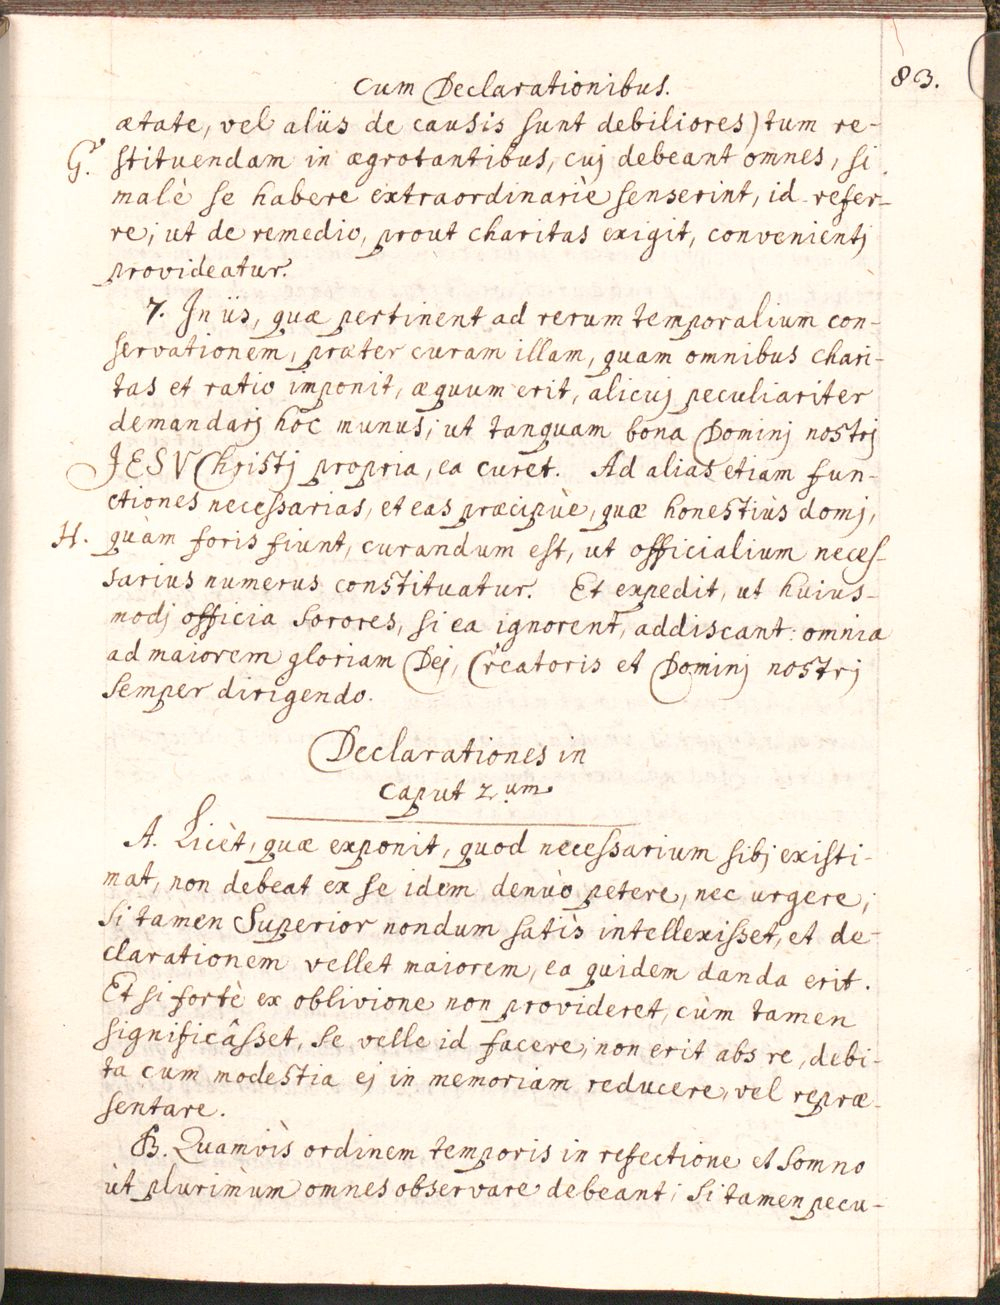 83.
Cum Declarationibus.
ætate, vel aliis de causis sunt debiliores) tum re-
G. stituendam in ægrotantibus, cuj debeant omnes, si
malè se habere extraordinariè senserint, id refer-
re; ut de remedio, prout charitas exigit, convenientj
provideatur.
7. In iis, quæ pertinent ad rerum temporalium con-
servationem, præter curam illam, quam omnibus chari-
tas et ratio imponit, æquum erit, alicuj peculiariter
demandarj hoc munus; ut tanquam bona Dominj nostrj
JESV Christj propria, ea curet. Ad alias etiam fun-
ctiones necessarias, et eas præcipùe, quæ honestiùs domj,
H. quàm foris fiunt, curandum est, ut officialium neces-
sarius numerus constituatur. Et expedit, ut huius-
modj officia Sorores, si ea ignorent, addiscant: omnia
ad maiorem gloriam Dej, Creatoris et Dominj nostrj
semper dirigendo.
Declarationes in
Caput 2.um
A. Licèt, quæ exponit, quod necessarium sibj existi-
mat, non debeat ex se idem denuò petere, nec urgere;
si tamen Superior nondum satìs intellexisset, et de-
clarationem vellet maiorem, ea quidem danda erit.
Et si fortè ex oblivione non provideret, cùm tamen
significâsset, se velle id facere; non erit abs re, debi-
ta cum modestia ej in memoriam reducere, vel repræ-
sentare.
B. Quamvìs ordinem temporis in refectione et somno
ùt plurimùm omnes observare debeant; si tamen pecu-